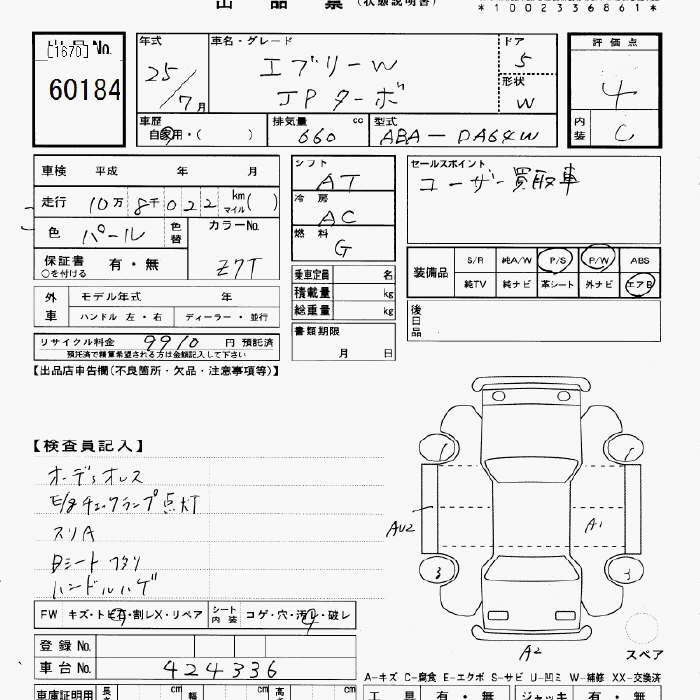 出品票 (状態説明書)
*1002336861*
[1670]
出品No.
60184
年式 25/7月
車名・グレード エブリーW
JPターボ
ドア 5
形状 W
評価点 4
内装 C
車歴 自家用・( )
排気量 660 cc
型式 ABA-DA64W
車検 平成 年 月
走行 10万 8千 022 km マイル( )
色 パール 色替
カラーNo. Z7T
保証書 有・無
○を付ける
シフト AT
冷房 AC
燃料 G
セールスポイント
ユーザー買取車
乗車定員 名
積載量 kg
総重量 kg
装備品 S/R 純A/W P/S P/W ABS
純TV 純ナビ 革シート 外ナビ エアB
外車 モデル年式 年
ハンドル 左・右 ディーラー・並行
書類期限
月 日
後日品
リサイクル料金 9910 円 預託済
預託済で精算希望される方は金額記入して下さい
【出品店申告欄(不良箇所・欠品・注意事項等)】
【検査員記入】
オーディオレス
E/gチェックランプ点灯
スリA
Bシート
ハンドルハゲ
AU2
A1
3
A2
スペア
FW キズ・トビ石・割レX・リペア シート内装 コゲ・穴・汚レ・破レ
登録No.
車台No. 424336
A-キズ C-腐食 E-エクボ S-サビ U-凹ミ W-補修 XX-交換済
車庫証明用 長 cm 幅 cm 高 cm
工具 有・無 ジャッキ 有・無